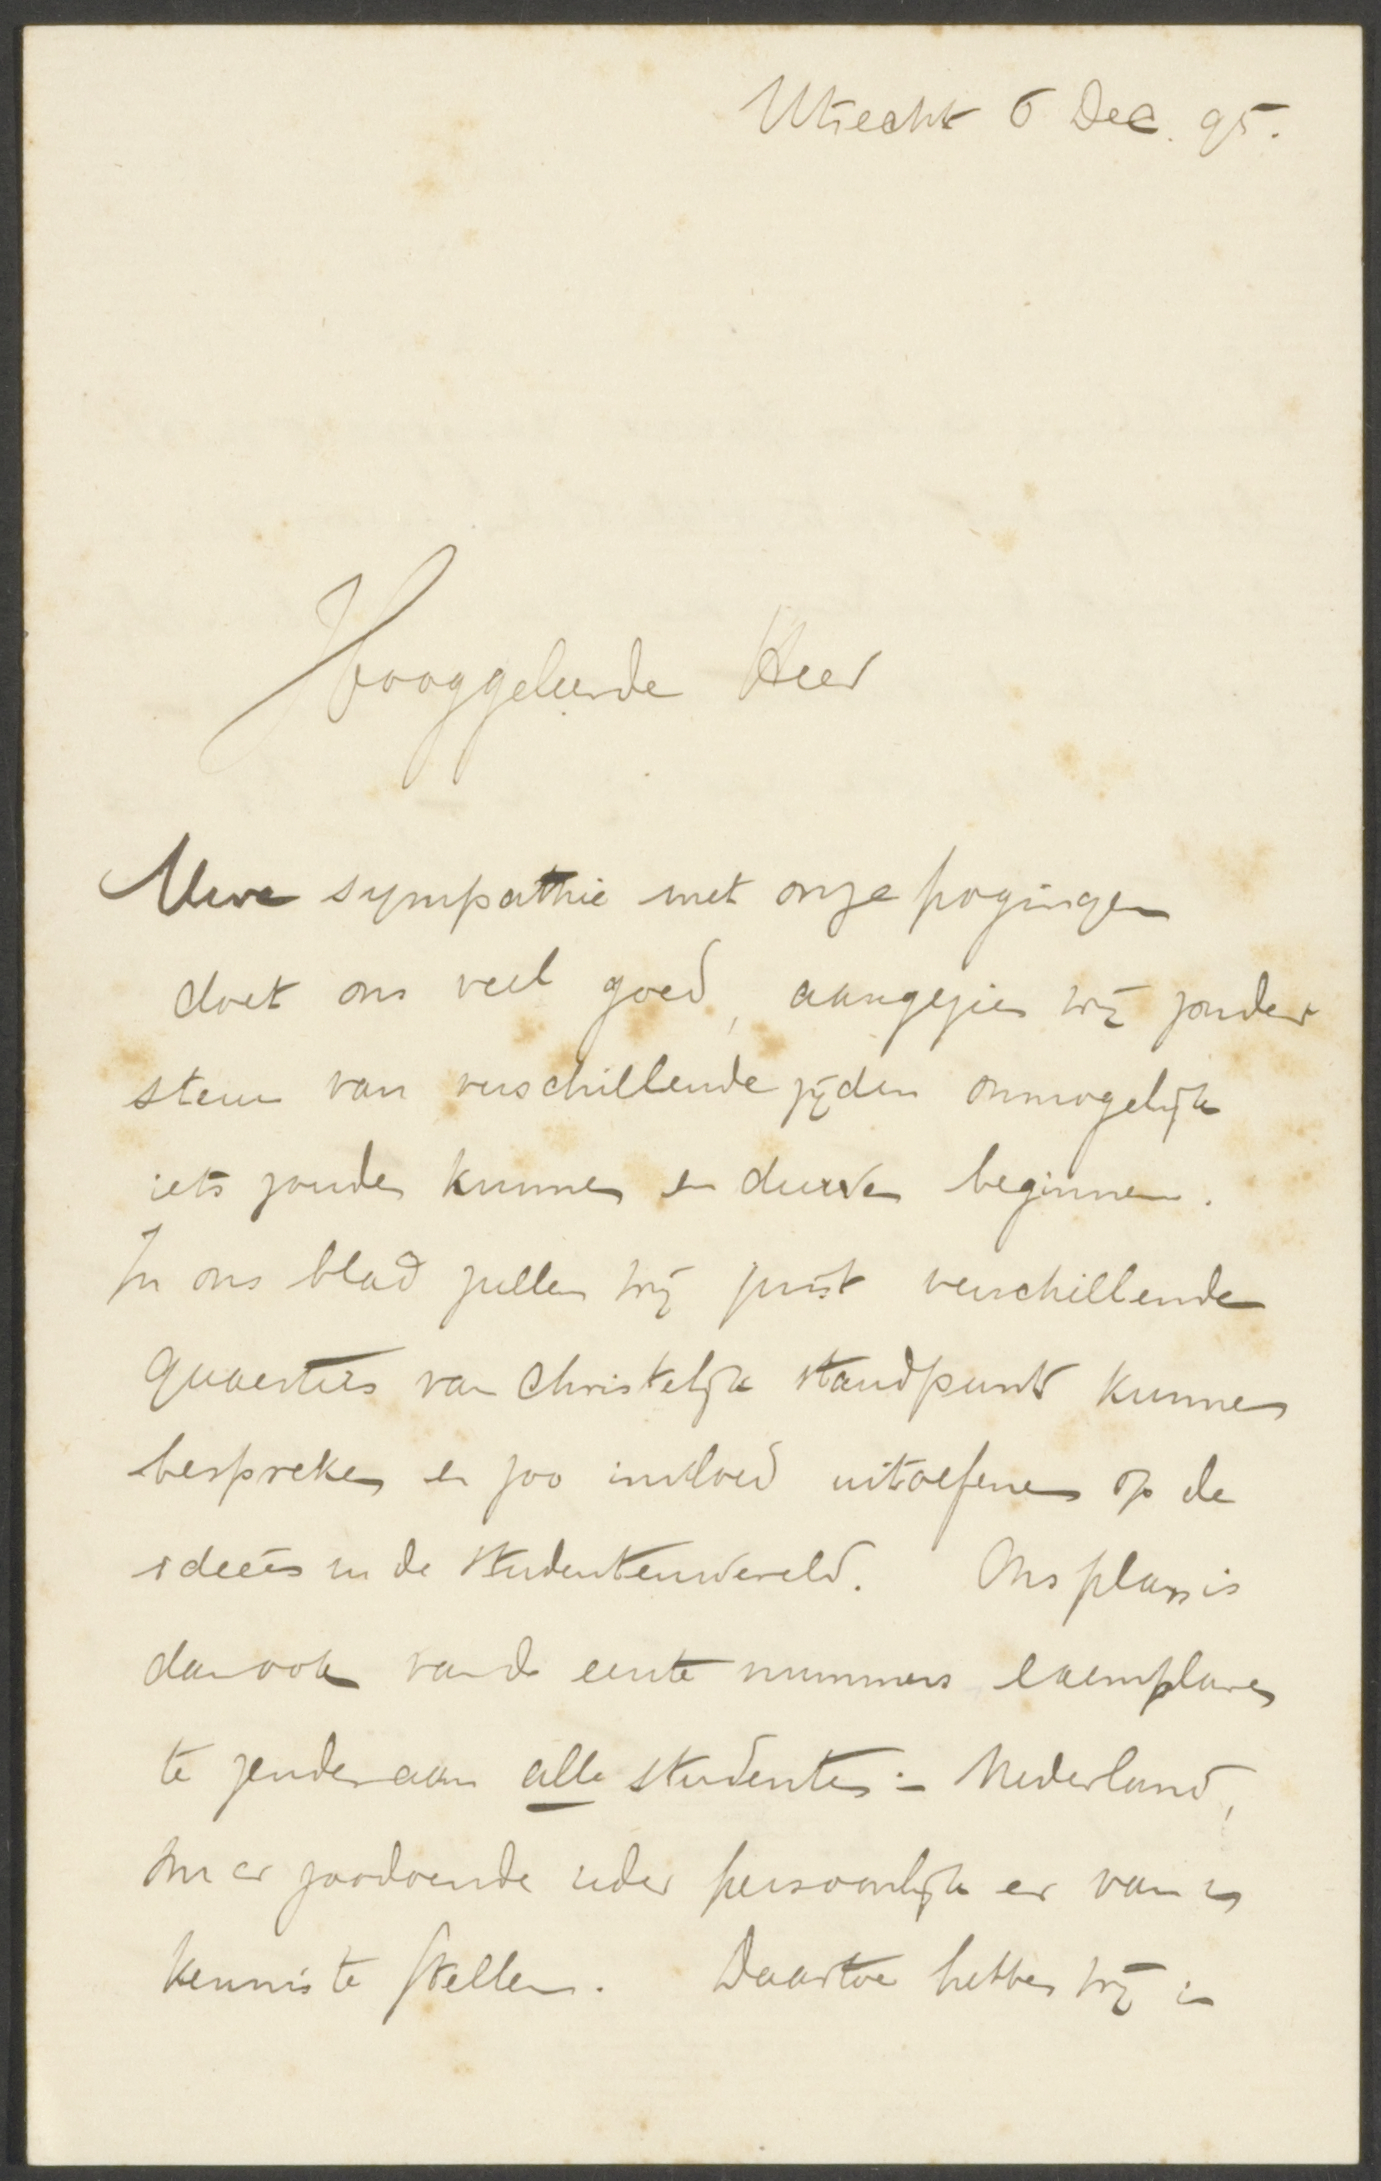 Utrecht 6 Dec. 95.
Hooggeleerde Heer
Uwe sympathie met onze pogingen
doet ons veel goed, aangezien wij zonder
steun van verschillende zijden onmogelijk
iets zouden kunnen en durven beginnen.
In ons blad zullen wij juist verschillende
quaesties van Christelijk standpunt kunnen
bespreken en zoo invloed uitoefenen op de
ideeën in de studentenwereld. Ons plan is
dan ook van de eerste nummers exemplaren
te zenden aan alle studenten in Nederland,
om er zoodoende ieder persoonlijk er van in
kennis te stellen. Daartoe hebben wij in